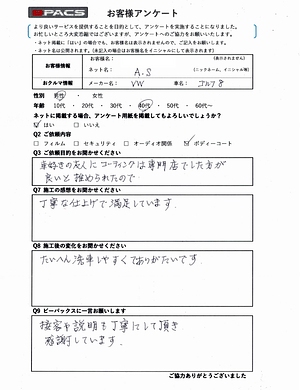 PACS
お客様アンケート
より良いサービスを提供することを目的として、アンケートを実施することになりました。
お忙しいところ大変恐縮ではございますが、アンケートへのご協力をお願いいたします。
・ネット掲載に「はい」の場合でも、お客様名は表示されませんので、ご記入をお願いします。
・ネット名は公開されます。(未記入の場合はお客様名をイニシャルにして表示されます)
お客様情報
お客様名:
(表示されません)
ネット名: A.S
(ニックネーム、イニシャル等)
おクルマ情報
メーカー名: VW
車名: ゴルフ8
性別 男性 ・ 女性
年齢 10代 ・ 20代 ・ 30代 ・ 40代 ・ 50代 ・ 60代〜
ネットに掲載する場合、アンケート用紙を掲載してもよろしいでしょうか?
☑ はい □ いいえ
Q2 ご依頼内容
□ フィルム □ セキュリティ □ オーディオ関係 ☑ ボディーコート
Q3 ご依頼目的をお聞かせください
車好きの友人にコーティングは専門店でした方が
良いと推められたので
Q7 施工の感想をお聞かせください
丁寧な仕上げで満足しています。
Q8 施工後の変化をお聞かせください
たいへん洗車しやすくてありがたいです。
Q9 ピーパックスに一言お願いします
接客や説明も丁寧にして頂き
感謝しています。
ご協力ありがとうございました